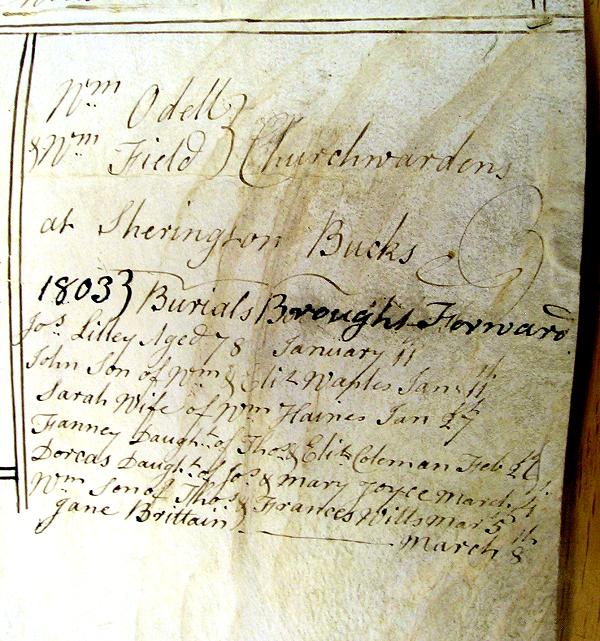 Wm Odell }
& Wm Field } Churchwardens
at Sherington Bucks
1803 } Burials Brought Forward
Jos. Lilley Aged 78 January 11
John Son of Wm & Eliz Waples Jan: 11th
Sarah Wife of Wm Haines Jan 27
Fanney Daught. of Thos. & Eliz Coleman Feb
Dorcas Daught. of Jos. & Mary Joyce March 4
Wm Son of Thos. & Frances Wills Mar 5th
Jane Brittain March 8th